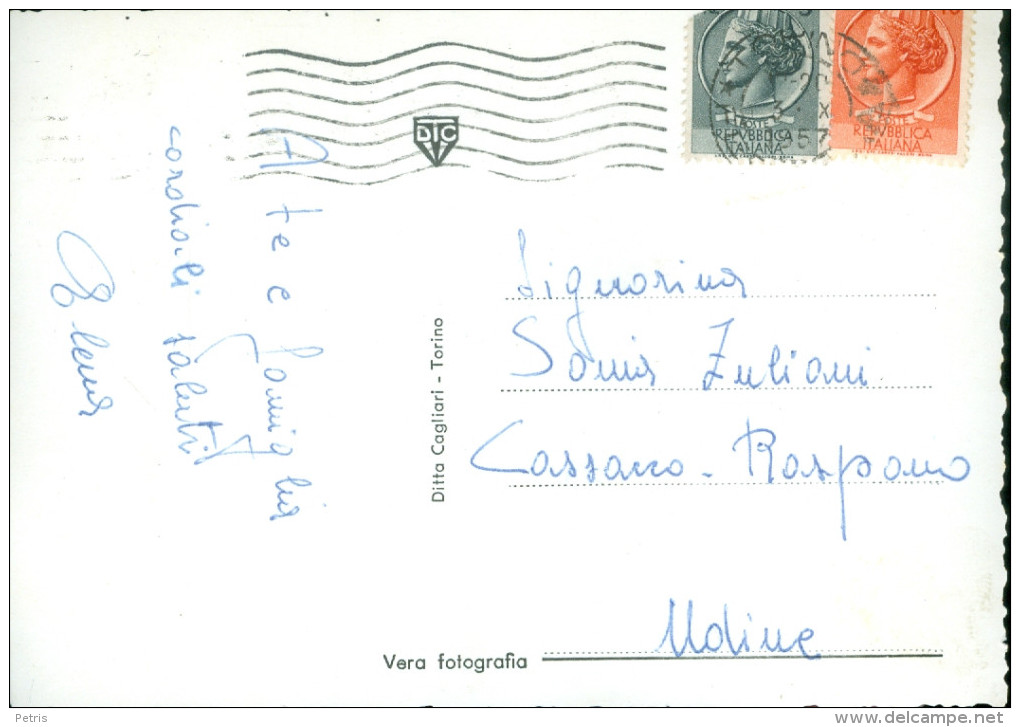 A te e famiglia
cordiali saluti
Elena
DTC
3. X
1957
POSTE
REPVBBLICA
ITALIANA
10
POSTE
REPVBBLICA
ITALIANA
Signorina
Sonia Zuliani
Cassacco - Raspano
Udine
Ditta Cagliari - Torino
Vera fotografia
Petris
www.delcampe.net